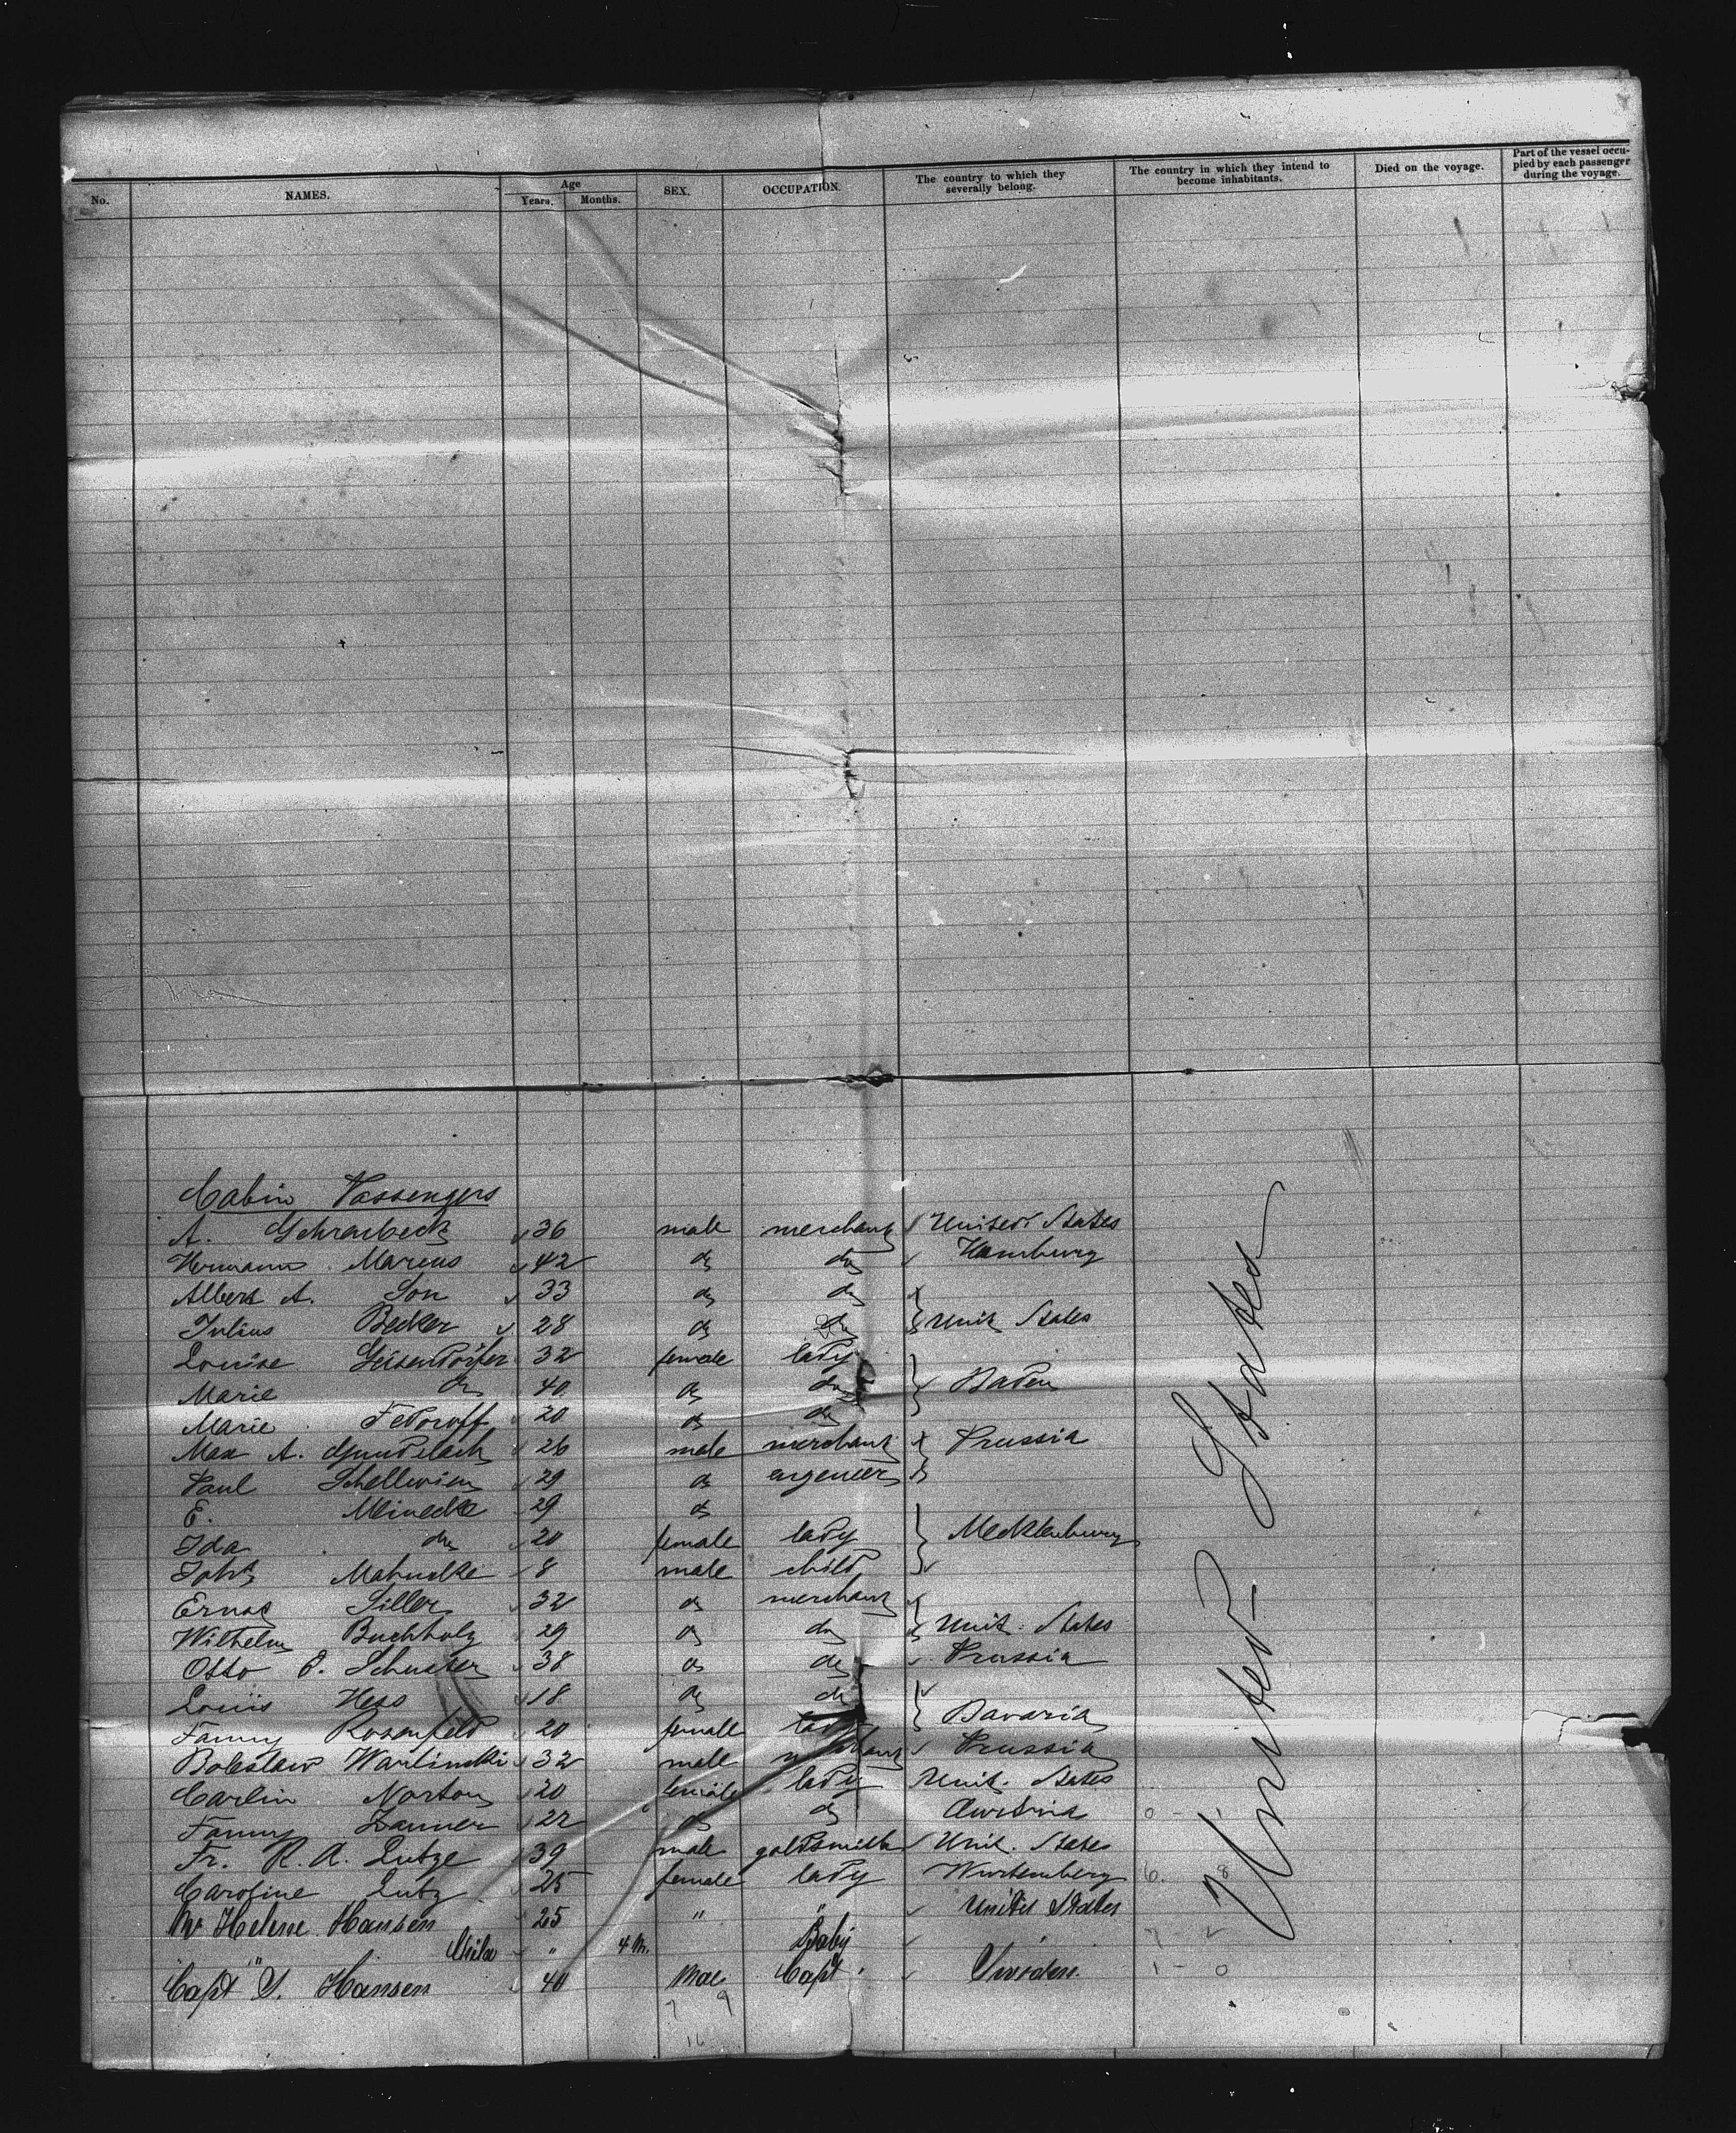 No. NAMES. Age Years. Months. SEX. OCCUPATION. The country to which they severally belong. The country in which they intend to become inhabitants. Died on the voyage. Part of the vessel occupied by each passenger during the voyage.
Cabin Passengers
A. Schrenbeck 36 male merchant United States
Hermann Marcus 42 do do Hamburg
Albert A. Son 33 do do
Julius Becker 28 do do Unit States
Louise Geisendörfer 32 female lady
Marie do 40 do do Baden
Marie Fedoroff 20 do do
Max A. Gundelach 26 male merchant Prussia
Paul Schellwien 29 do engeneer
E. Meinecke 29 do
Ida do 20 female lady Mecklenburg
Johs Mahncke 8 male child
Ernst Siller 32 do merchant
Wilhelm Buchholz 29 do do Unit. States
Otto C. Schuster 38 do do Prussia
Louis Hess 18 do do
Fanny Rosenfeld 20 female lady Bavaria
Boleslaw Warlimski 32 male merchant Prussia
Carlin Norton 20 female lady Unit. States
Fanny Zanner 22 do do Austria 0 -
Fr. R. A. Lutze 39 male goldsmith Unit. States
Caroline Lutz 25 female lady Wurtemberg 6. 8
Mr Helene Hansen 25 " " United States
" Child " 4 M. Baby 7 2
Capt S. Hansen 40 Male Capt Sweden. 1 - 0
7 9
16
United States